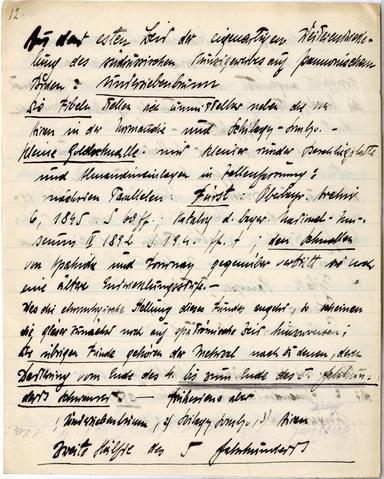 12
Aus der ersten Zeit der eigenartigen Weiterentwick-
lung des pontischen Kunstgewerbes auf pannonischem
Boden: Untersiebenbrunn
Die Fibeln stellen sie unmittelbar neben die von
Airan in der Normandie und Szilágy-Somlyo. -
Kleine Goldschnalle mit kleiner runder Beschlägplatte
und Almandineinlagen in Zellenfassung:
nächsten Parallelen: Fürst: Oberbayr. Archiv
6, 1845 S. ; Katalog d. bayer. National-Mu-
seums IV 1892 S. ; den Schnallen
von und Tournay gegenüber vertritt sie noch
eine ältere Entwicklungsstufe. -
Was die chronologische Stellung dieses Fundes angeht, so scheinen
die Gläser zunächst noch auf spätrömische Zeit hinzuweisen;
Die übrigen Funde gehören der Mehrzahl nach zu denen, deren
Datierung vom Ende des 4. bis zum Ende des 5. Jahrhun-
derts schwankt - frühestens aber
1) Untersiebenbrunn, 2) Szilágy-Somlyo, 3) Airan
zweite Hälfte des 5 Jahrhunderts